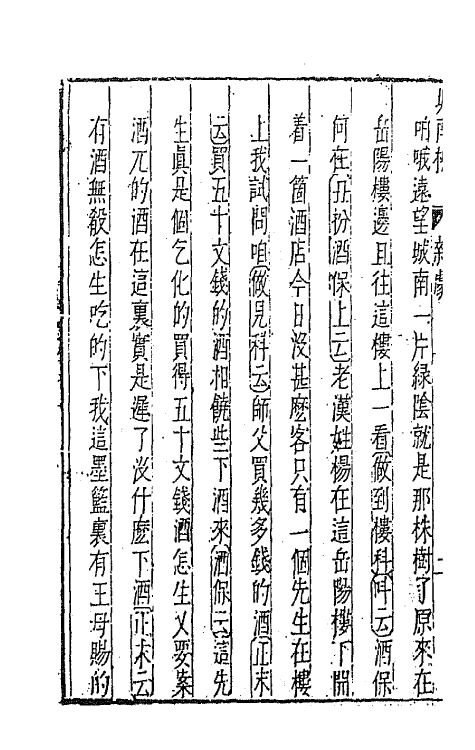 咱哦遠望城南一片綠陰就是那株樹了原來在
岳陽樓邊且往這樓上一看做到樓科叫云酒保
何在丑扮酒保上云老漢姓楊在這岳陽樓下開
着一箇酒店今日沒甚麽客只有一個先生在樓
上我試問咱做見科云師父買幾多錢的酒正末
云買五十文錢的酒相饒些下酒來酒保云這先
生眞是個乞化的買得五十文錢酒怎生又要案
酒兀的酒在這裏實是遲了沒什麽下酒正末云
有酒無殽怎生吃的下我這墨籃裏有王母賜的